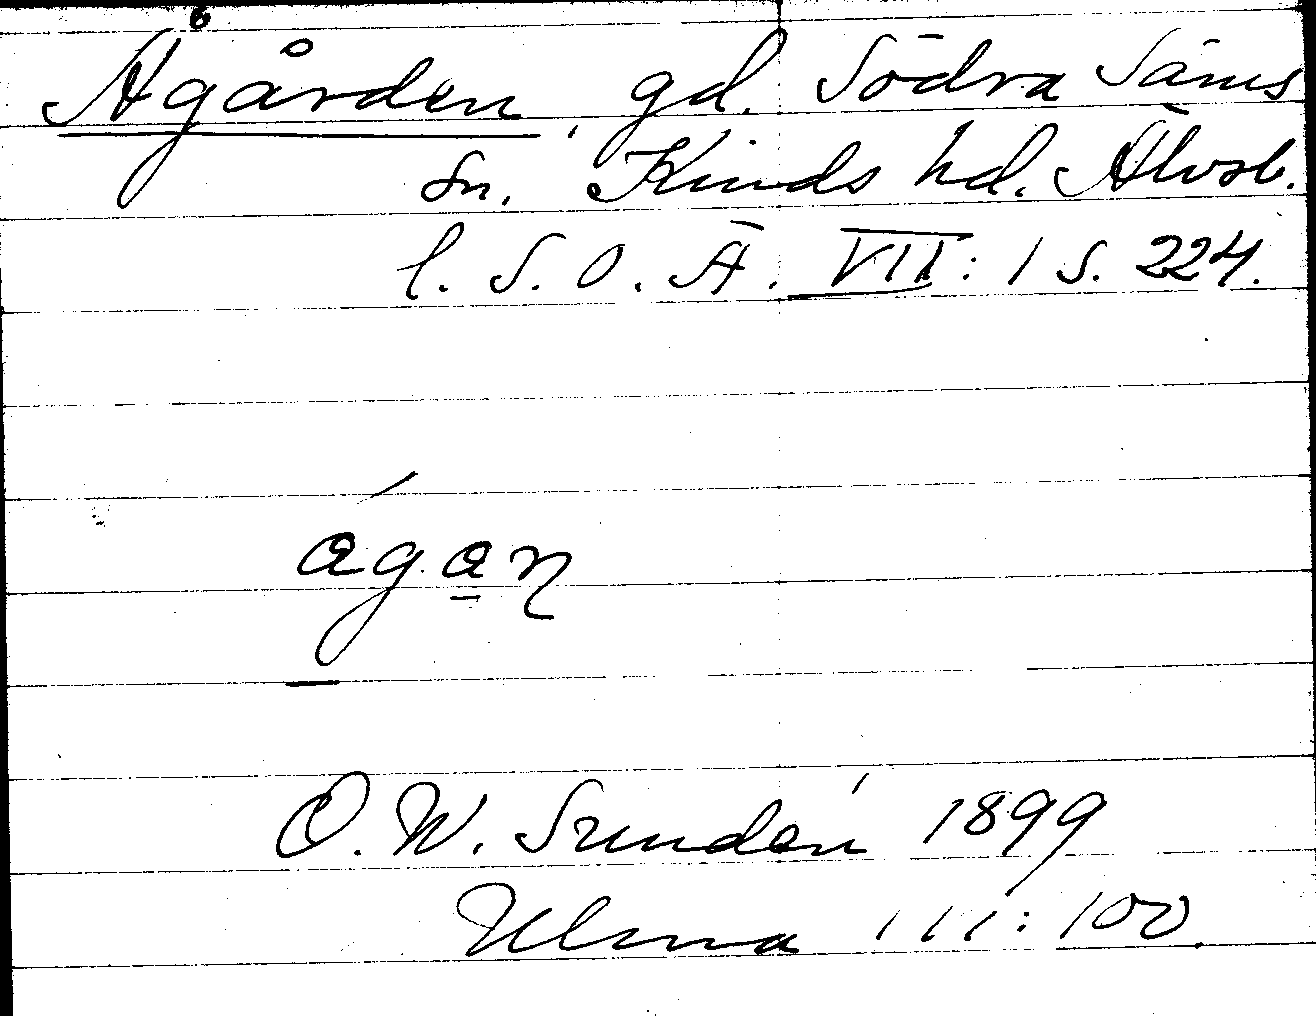 Ågården, gd. Södra Säms
sn. Kinds hd. Älvsb.
l. S.O.Ä. VII: 1 s. 224.
O. W. Sundén 1899
Ulma 111:100